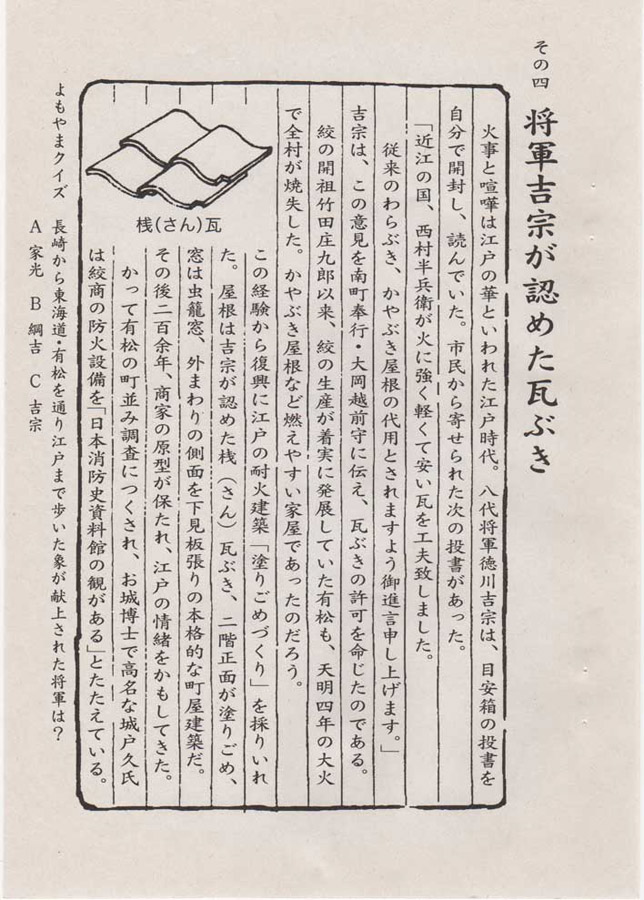 その四　将軍吉宗が認めた瓦ぶき
火事と喧嘩は江戸の華といわれた江戸時代。八代将軍徳川吉宗は、目安箱の投書を
自分で開封し、読んでいた。市民から寄せられた次の投書があった。
「近江の国、西村半兵衛が火に強く軽くて安い瓦を工夫致しました。
従来のわらぶき、かやぶき屋根の代用とされますよう御進言申し上げます。」
吉宗は、この意見を南町奉行・大岡越前守に伝え、瓦ぶきの許可を命じたのである。
絞の開祖竹田庄九郎以来、絞の生産が着実に発展していた有松も、天明四年の大火
で全村が焼失した。かやぶき屋根など燃えやすい家屋であったのだろう。
この経験から復興に江戸の耐火建築「塗りごめづくり」を採りいれ
た。屋根は吉宗が認めた桟（さん）瓦ぶき、二階正面が塗りごめ、
窓は虫籠窓、外まわりの側面を下見板張りの本格的な町屋建築だ。
その後二百余年、商家の原型が保たれ、江戸の情緒をかもしてきた。
かって有松の町並み調査につくされ、お城博士で高名な城戸久氏
は絞商の防火設備を「日本消防史資料館の観がある」とたたえている。
桟(さん)瓦
よもやまクイズ　長崎から東海道・有松を通り江戸まで歩いた象が献上された将軍は？
A 家光　B 綱吉　C 吉宗